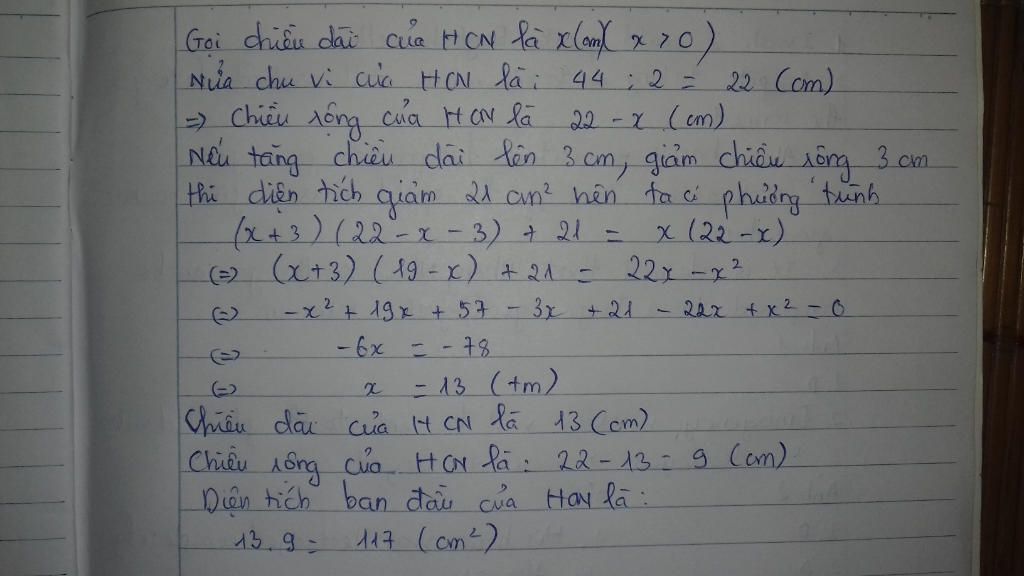 Gọi chiều dài của HCN là x(cm)( x > 0 )
Nửa chu vi của HCN là: 44 : 2 = 22 (cm)
=> Chiều rộng của HCN là 22 - x (cm)
Nếu tăng chiều dài lên 3 cm, giảm chiều rộng 3 cm
thì diện tích giảm 21 cm² nên ta có phương trình
(x+3) (22 - x - 3) + 21 = x (22 - x)
(=> (x+3) (19 - x) + 21 = 22x - x²
(=> -x² + 19x + 57 - 3x + 21 - 22x + x² = 0
(=> -6x = - 78
(=> x = 13 (tm)
Chiều dài của HCN là 13 (cm)
Chiều rộng của HCN là: 22 - 13 = 9 (cm)
Diện tích ban đầu của HCN là:
13.9 = 117 (cm²)